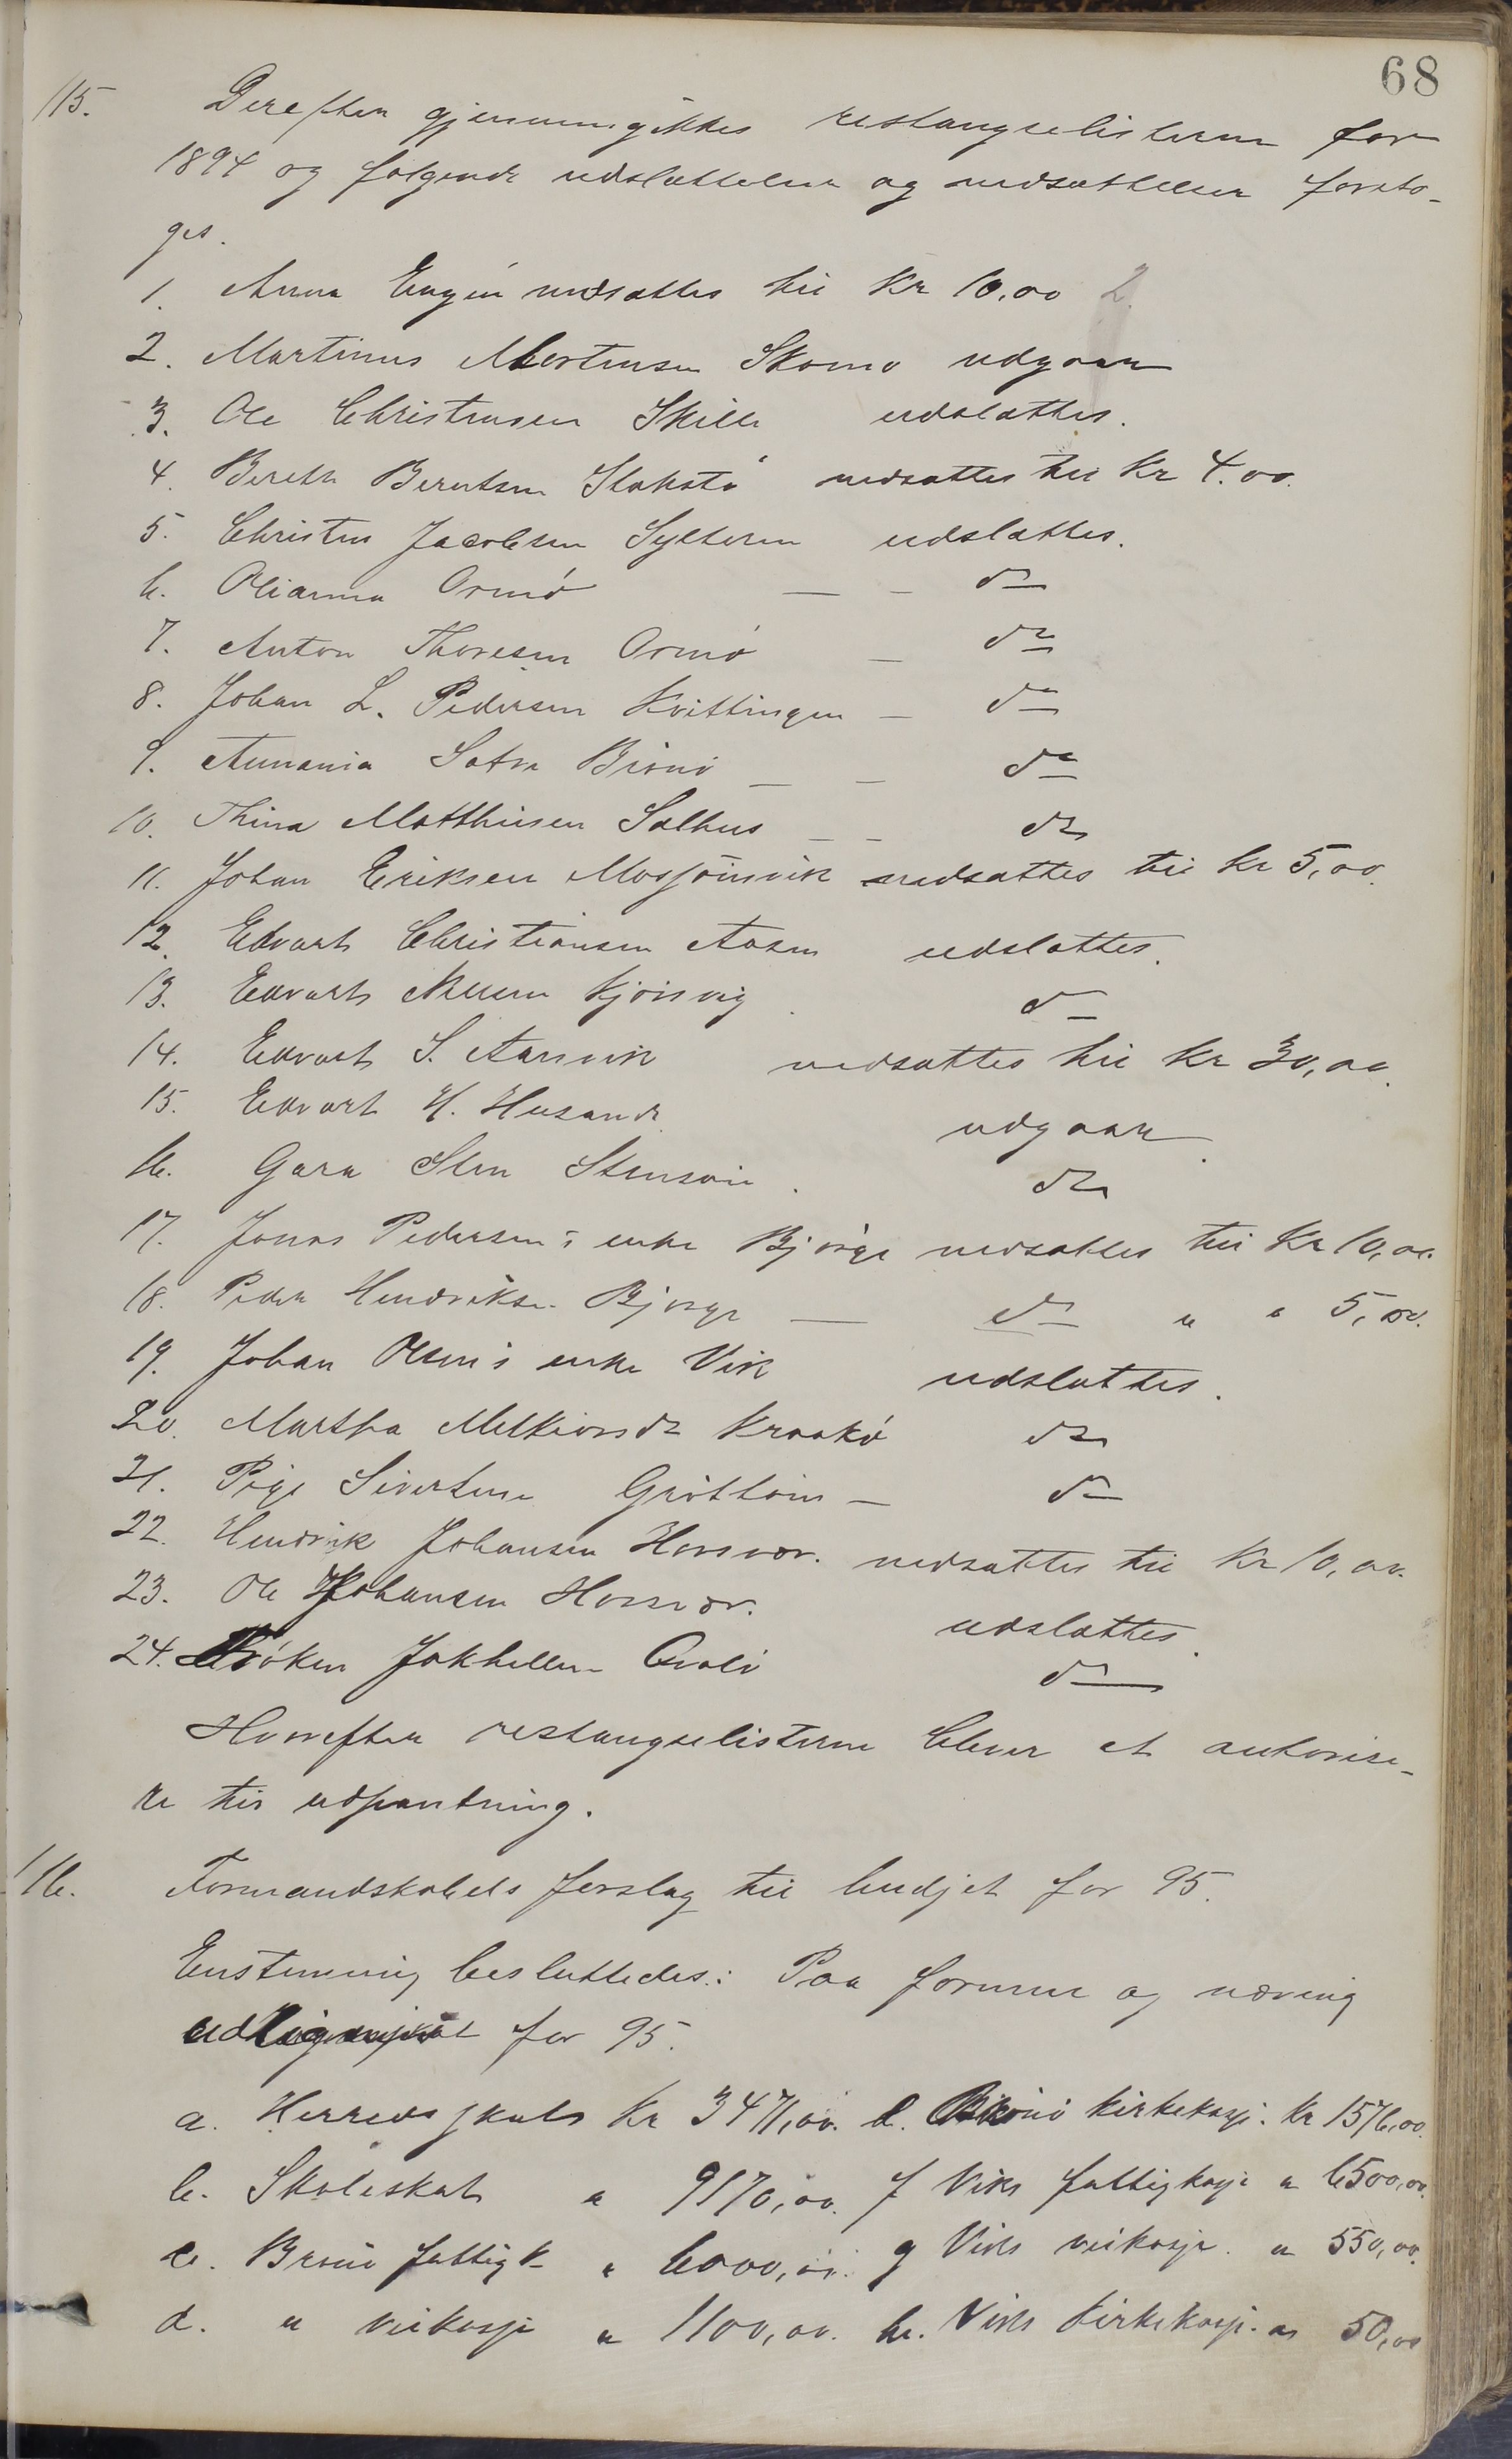 68
115. Derefter gjennemgikkes restangselisterne for
1894 og følgende udslattelser og nedsættelser foreto-
ges.
1. Anna Engen nedsattes til Kr 10,00
2. Martinus Mortensen Skomo udgaar
3. Ole Christensen Skille udslattes.
4. Bereth Berntsen Stokstø nedsattes til Kr 4.00.
5. Christen Jacobsen Sylteren udslattes.
6. Olianna Ormø — - do
7. Anton Thoresen Ormø — do
8. Johan L. Pedersen Kvittingen — do
9. Annania Sofia Brønø — — do
10. Thina Matthisen Salhus — — do
11. Johan Eriksen Mosjøisvik nedsattes til Kr 5,00.
12. Edvart Christiansen Aasen udslattes.
13. Edvart Nilsen Kjøisvig do
14. Edvart S. Aarsvik nedsattes til Kr 30,00.
15. Edvart H. Husand udgaar.
16. Gara Sten Stensøi do
17. Jonas Pedersen's enke Bjørge nedsattes til Kr 10,00.
18. Peder Hendriksen Bjørge — do " " 5,00.
19. Johan Olsen's enke Vik udslattes.
20. Martha Melkiorsdr Kraakø do
21. Pige Sivertsen Grøttøin — do
22. Hendrik Johansen Horsvær. nedsattes til Kr 10,00.
23. Ole Johansen Horsvær. udslattes.
24. Frøken Jakhellen Qvalø do
Hvorefter restangselisterne blever at autorise-
re til udpantning.
116. Formandskabets forslag til budjet for 95.
Enstemmig besluttedes: Paa formue og næring
for 95.
a. Herredsskat Kr 3471,00. e. Brønø kirkekasse. Kr 1576,00.
b. Skoleskat " 9170,00. f Viks fattigkasse " 6500,00.
c. Brønø fattigk " 6000,00. g Viks veikasse. " 550,00.
d. " veikasse " 1100,00. h. Viks kirkekasse. " 50,00